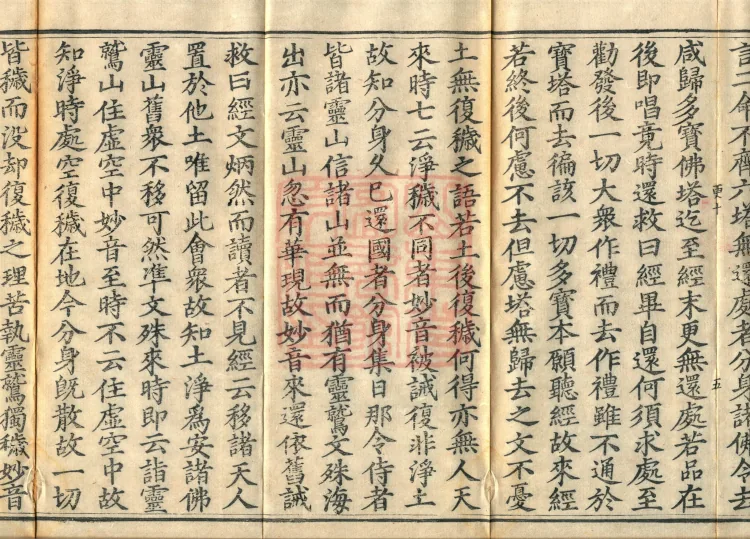 二會不齊六塔無還處者分身諸佛令去
更十
五
咸歸多寶佛塔迄至經末更無還處若品在
後即唱竟時還救曰經畢自還何須求處至
勸發後一切大衆作禮而去作禮雖不通於
寶塔而去徧該一切多寶本願聽經故來經
若終後何慮不去但慮塔無歸去之文不憂
土無復穢之語若土後復穢何得亦無人天
來時七云淨穢不同者妙音被誡復非淨土
故知分身久已還國者分身集日那令侍者
皆詣靈山信諸山並無而猶有靈鷲文殊海
出亦云靈山忽有華現故妙音來還依舊誡
救曰經文炳然而讀者不見經云移諸天人
置於他土唯留此會衆故知土淨爲安諸佛
靈山舊衆不移可然準文殊來時即云詣靈
鷲山住虛空中妙音至時不云住虛空中故
知淨時處空復穢在地今分身旣散故一切
皆穢而没却復穢之理苦執靈鷲獨穢妙音